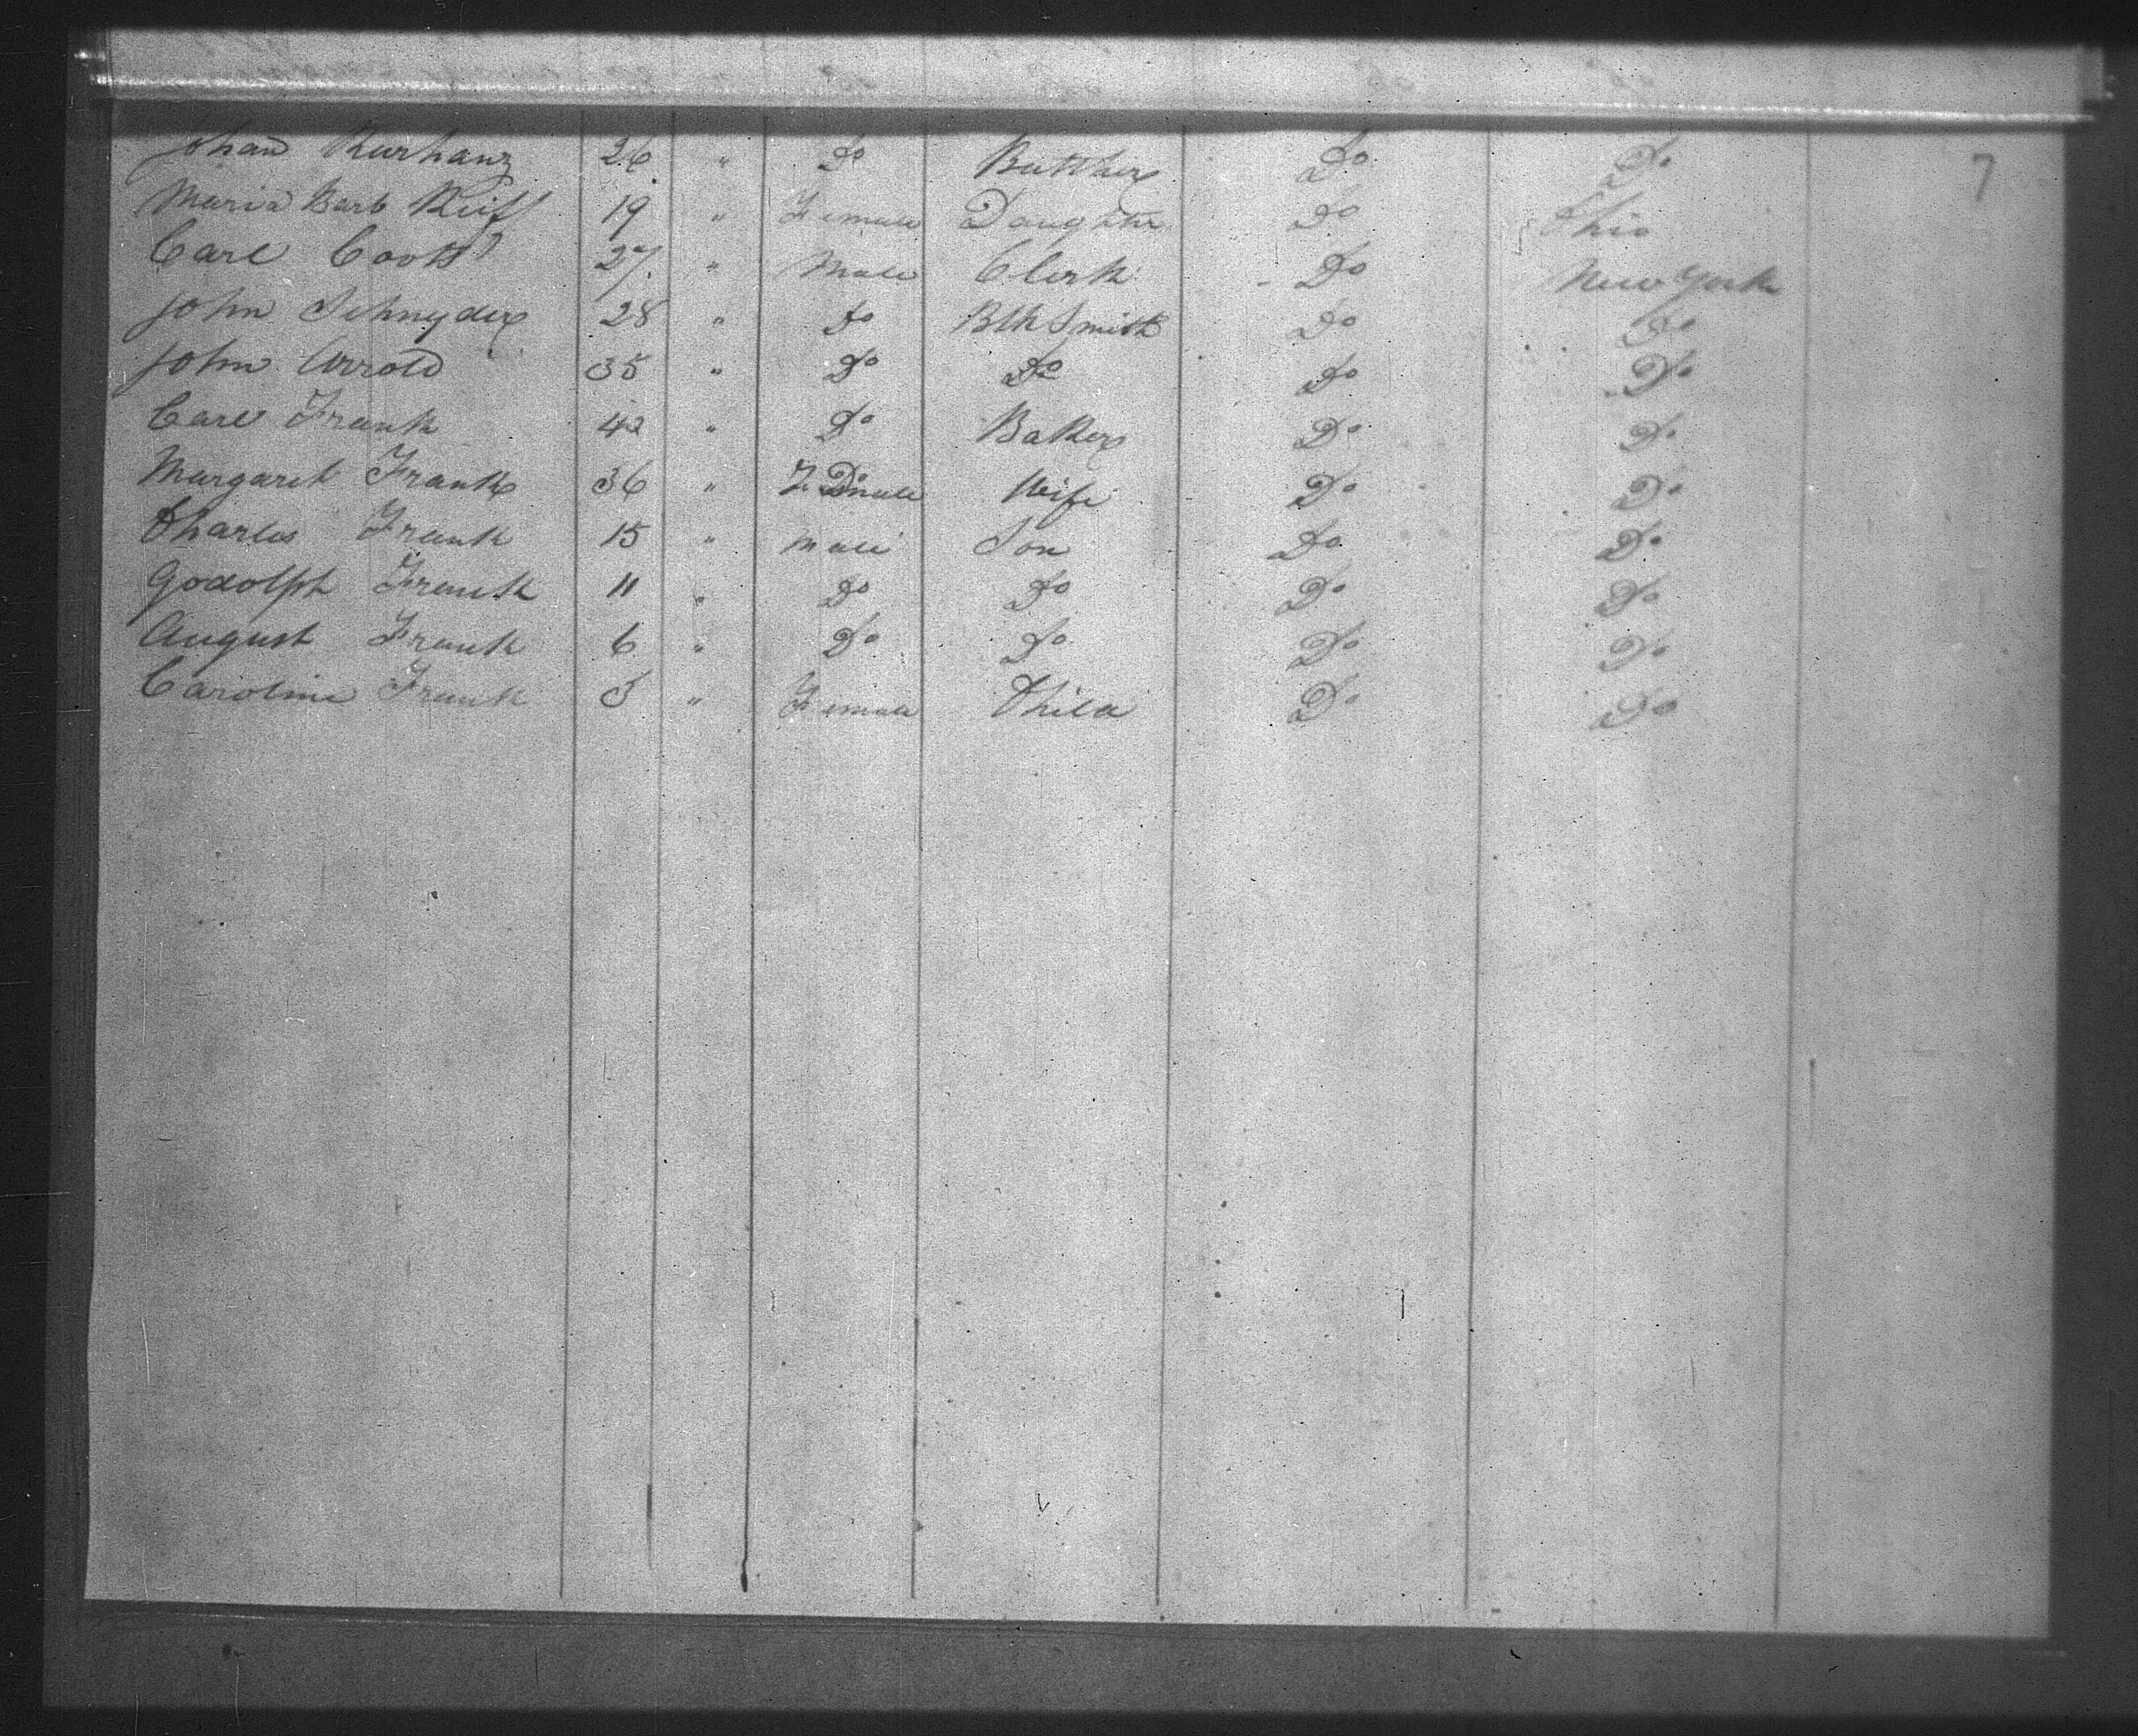 Johan Kurhanz 26 " Do Butcher Do Do 7
Maria Barb Reiff 19 " Female Daughter Do Ohio
Carl 27 " Male Clerk Do New York
John Schnyder 28 " Do Blk Smith Do Do
John Arrold 35 " Do Do Do Do
Carl Frank 42 " Do Baker Do Do
Margaret Frank 36 " Female Wife Do Do
Charles Frank 15 " Male Son Do Do
Godolph Frank 11 " Do Do Do Do
August Frank 6 " Do Do Do Do
Caroline Frank 5 " Female Child Do Do